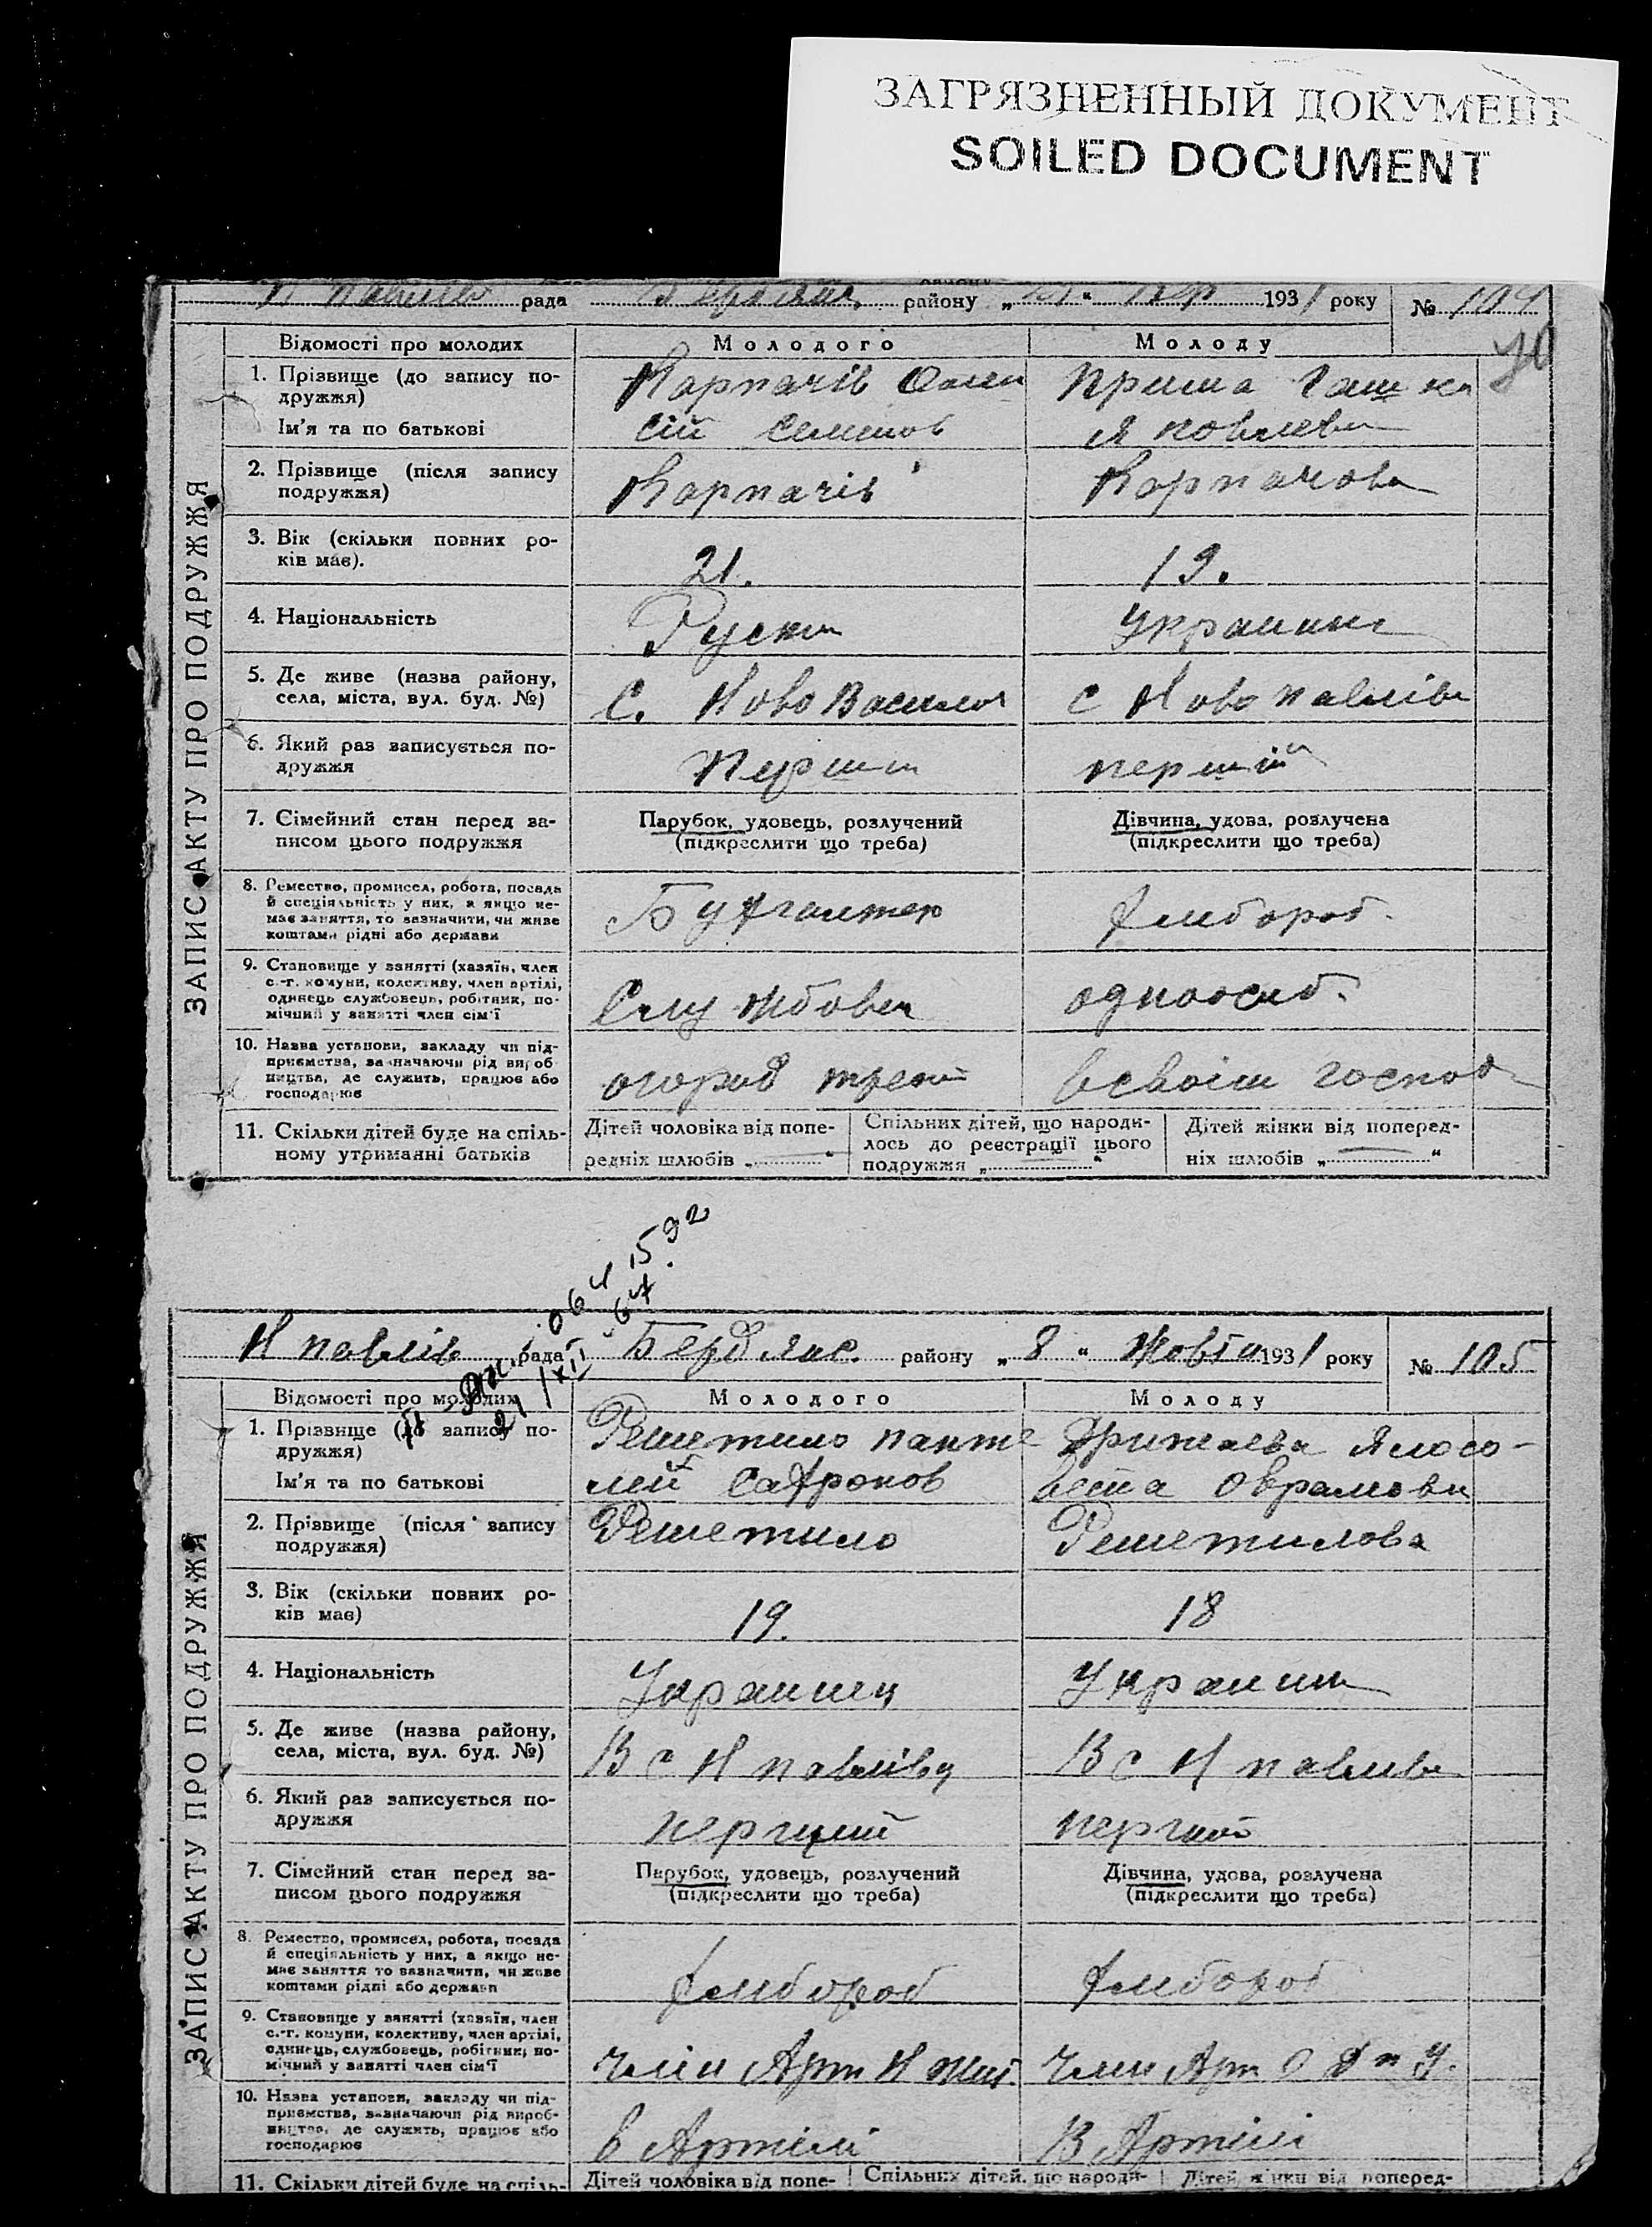 ЗАГРЯЗНЕННЫЙ ДОКУМЕНТ
SOILED DOCUMENT
рада района району „ “ 1931 року № 104
ЗАПИС АКТУ ПРО ПОДРУЖЖЯ
Відомості про молодих Молодого Молоду
1. Прізвище (до запису подружжя)
Ім'я та по батькові
Карпачів Олек Приша Гашка
сій Семенов Яковлевн
2. Прізвище (після запису
подружжя)
Карпачів Карпачова
3. Вік (скільки повних ро-
ків має).
21. 19.
4. Національність Руски Украинк
5. Де живе (назва району,
села, міста, вул. буд. №)
С. Ново Василов С Ново павлівн
6. Який раз записується по-
дружжя
перший
7. Сімейний стан перед за-
писом цього подружжя
Парубок, удовець, розлучений Дівчина, удова, розлучена
(підкреслити що треба) (підкреслити що треба)
8. Ремество, промисел, робота, посада
й спеціяльність у них, а якщо не-
має заняття, то зазначити, чи живе
коштами рідні або держави
Бухгалтер Хлибороб.
9. Становище у занятті (хазяїн, член
с.-г. комуни, колективу, член артілі,
одинець службовець, робітник, по-
мічний у занятті член сім'ї
Службовец одноосиб.
10. Назва установи, закладу чи під-
приємства, зазначаючи рід вироб-
ництва, де служить, працює або
господарює
в своїм господ
11. Скільки дітей буде на спіль-
ному утриманні батьків
Дітей чоловіка від попе-
редніх шлюбів „ “
Спільних дітей, що народи-
лось до реєстрації цього
подружжя „ “
Дітей жінки від поперед-
ніх шлюбів „ “
Н павлів рада Бердянс. району „8“ Жовтн 1931 року № 105
ЗАПИС АКТУ ПРО ПОДРУЖЖЯ
Відомості про молодих Молодого Молоду
1. Прізвище (до запису по-
дружжя)
Ім'я та по батькові
Решетило панте
лей Сафронов
вета Оврамовн
2. Прізвище (після запису
подружжя)
Решетило Решетилова
3. Вік (скільки повних ро-
ків має)
19. 18
4. Національність Украинц Украинк
5. Де живе (назва району,
села, міста, вул. буд. №)
В с Н павлівц В с Н павливн
6. Який раз записується по-
дружжя
7. Сімейний стан перед за-
писом цього подружжя
Парубок, удовець, розлучений Дівчина, удова, розлучена
(підкреслити що треба) (підкреслити що треба)
8. Ремество, промисел, робота, посада
й спеціяльність у них, а якщо не-
має заняття то зазначити, чи живе
коштами рідні або держави
Хлибороб Хлибороб
9. Становище у занятті (хазяїн, член
с.-г. комуни, колективу, член артілі,
одинець, службовець, робітник, по-
мічний у занятті член сім'ї
член Арт Н Жит. член Арт
10. Назва установи, закладу чи під-
приємства, зазначаючи рід вироб-
ництва, де служить, працює або
господарює
в Артілі В Артілі
11. Скільки дітей буде на спіль- Дітей чоловіка від попе- Спільних дітей, що народи- Дітей жінки від поперед-